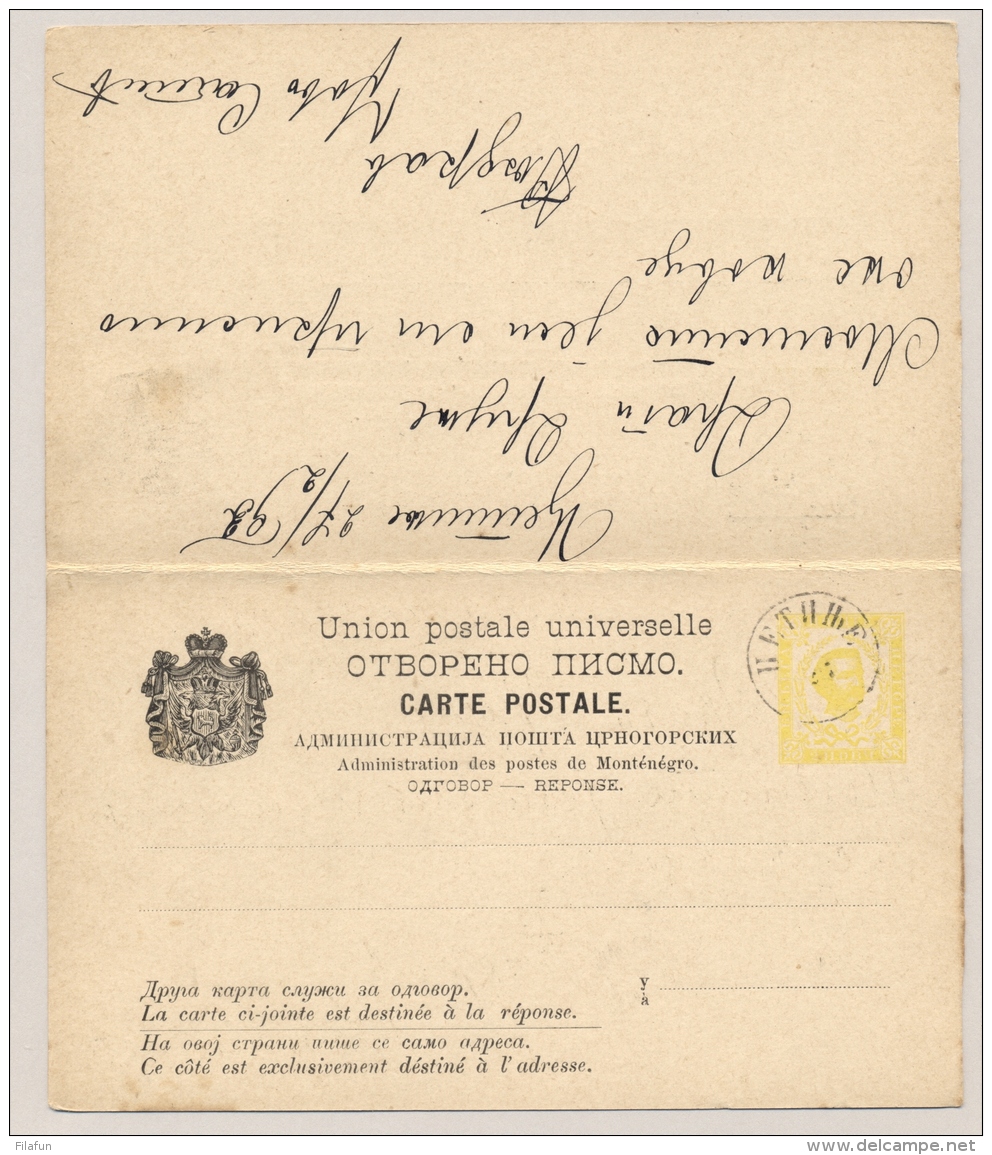 Цетиње 27/2 92
Драги Друже
новце
Поздрав
Union postale universelle
ОТВОРЕНО ПИСМО.
CARTE POSTALE.
АДМИНИСТРАЦИЈА ПОШТА ЦРНОГОРСКИХ
Administration des postes de Monténégro.
ОДГОВОР — REPONSE.
ЦЕТИЊЕ
Друга карта служи за одговор.
La carte ci-jointe est destinée à la réponse.
На овој страни пише се само адреса.
Ce côté est exclusivement déstiné à l'adresse.
у
à
Filafun
delcampe.net